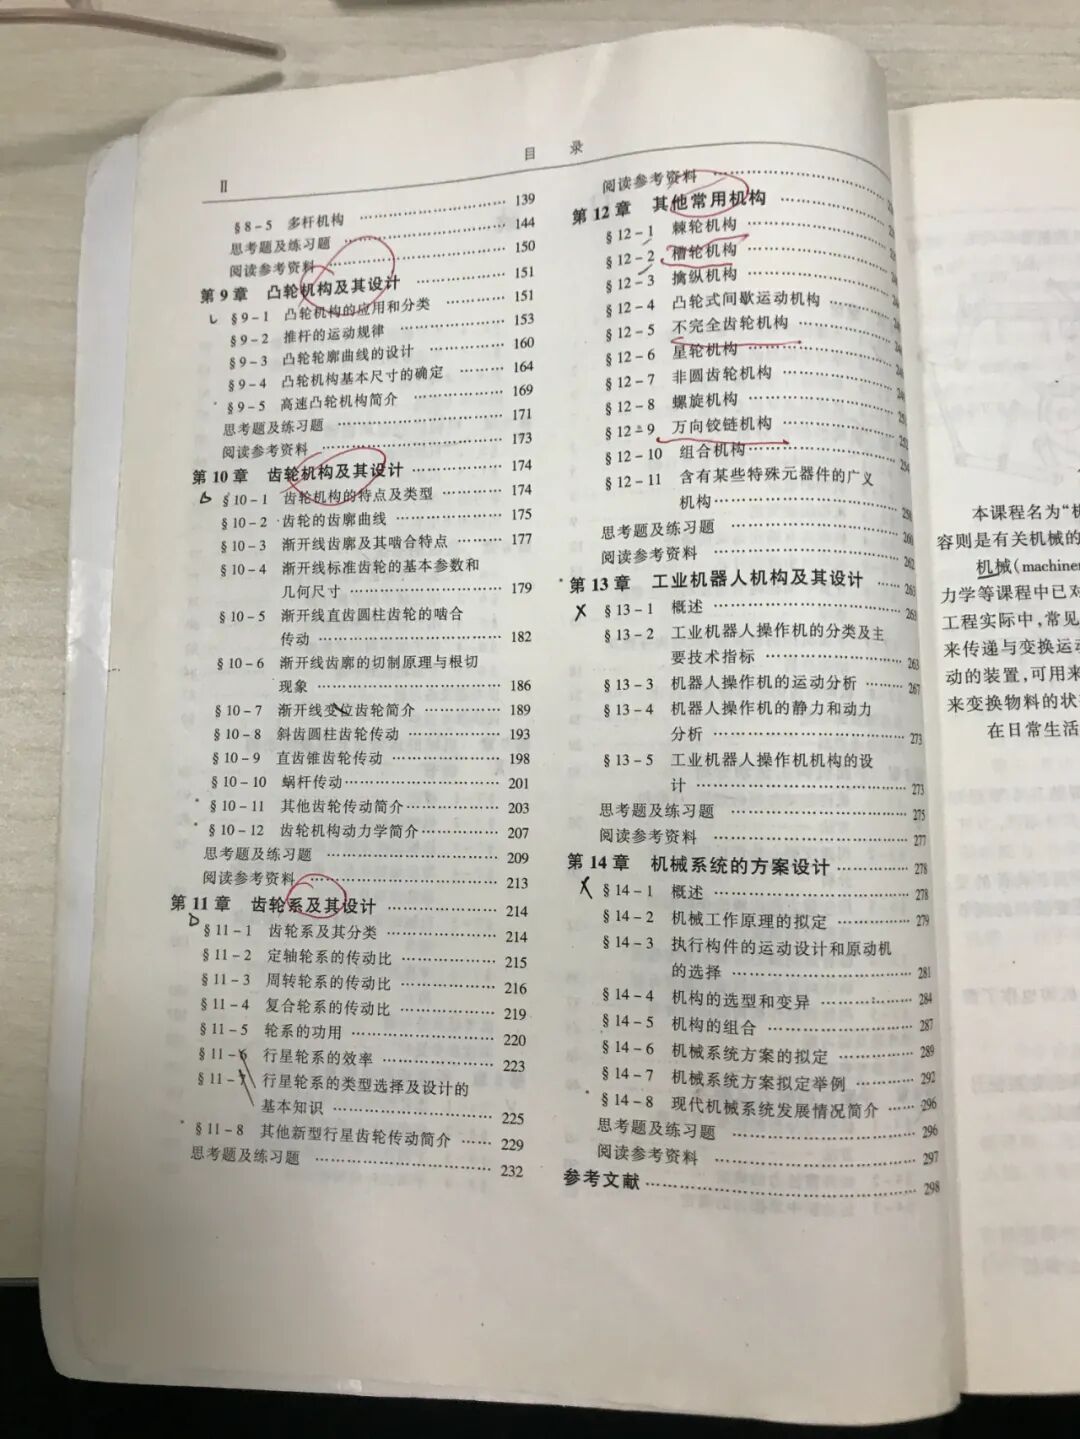 Ⅱ
目 录
§8-5 多杆机构 …… 139
思考题及练习题 …… 144
阅读参考资料 …… 150
第9章 凸轮机构及其设计 …… 151
§9-1 凸轮机构的应用和分类 …… 151
§9-2 推杆的运动规律 …… 153
§9-3 凸轮轮廓曲线的设计 …… 160
§9-4 凸轮机构基本尺寸的确定 …… 164
§9-5 高速凸轮机构简介 …… 169
思考题及练习题 …… 171
阅读参考资料 …… 173
第10章 齿轮机构及其设计 …… 174
§10-1 齿轮机构的特点及类型 …… 174
§10-2 齿轮的齿廓曲线 …… 175
§10-3 渐开线齿廓及其啮合特点 …… 177
§10-4 渐开线标准齿轮的基本参数和
几何尺寸 …… 179
§10-5 渐开线直齿圆柱齿轮的啮合
传动 …… 182
§10-6 渐开线齿廓的切制原理与根切
现象 …… 186
§10-7 渐开线变位齿轮简介 …… 189
§10-8 斜齿圆柱齿轮传动 …… 193
§10-9 直齿锥齿轮传动 …… 198
§10-10 蜗杆传动 …… 201
§10-11 其他齿轮传动简介 …… 203
§10-12 齿轮机构动力学简介 …… 207
思考题及练习题 …… 209
阅读参考资料 …… 213
第11章 齿轮系及其设计 …… 214
§11-1 齿轮系及其分类 …… 214
§11-2 定轴轮系的传动比 …… 215
§11-3 周转轮系的传动比 …… 216
§11-4 复合轮系的传动比 …… 219
§11-5 轮系的功用 …… 220
§11-6 行星轮系的效率 …… 223
§11-7 行星轮系的类型选择及设计的
基本知识 …… 225
§11-8 其他新型行星齿轮传动简介 …… 229
思考题及练习题 …… 232
阅读参考资料 ……
第12章 其他常用机构 ……
§12-1 棘轮机构 ……
§12-2 槽轮机构 ……
§12-3 擒纵机构 ……
§12-4 凸轮式间歇运动机构 ……
§12-5 不完全齿轮机构 ……
§12-6 星轮机构 ……
§12-7 非圆齿轮机构 ……
§12-8 螺旋机构 ……
§12-9 万向铰链机构 ……
§12-10 组合机构 ……
§12-11 含有某些特殊元器件的广义
机构 ……
思考题及练习题 …… 260
阅读参考资料 …… 262
第13章 工业机器人机构及其设计 …… 263
§13-1 概述 …… 263
§13-2 工业机器人操作机的分类及主
要技术指标 …… 263
§13-3 机器人操作机的运动分析 …… 267
§13-4 机器人操作机的静力和动力
分析 …… 273
§13-5 工业机器人操作机机构的设
计 …… 273
思考题及练习题 …… 275
阅读参考资料 …… 277
第14章 机械系统的方案设计 …… 278
§14-1 概述 …… 278
§14-2 机械工作原理的拟定 …… 279
§14-3 执行构件的运动设计和原动机
的选择 …… 281
§14-4 机构的选型和变异 …… 284
§14-5 机构的组合 …… 287
§14-6 机械系统方案的拟定 …… 289
§14-7 机械系统方案拟定举例 …… 292
§14-8 现代机械系统发展情况简介 …… 296
思考题及练习题 …… 296
阅读参考资料 …… 297
参考文献 …… 298
本课程名为“机
容则是有关机械的
机械(machiner
力学等课程中已对
工程实际中,常见
来传递与变换运动
动的装置,可用来
来变换物料的状
在日常生活